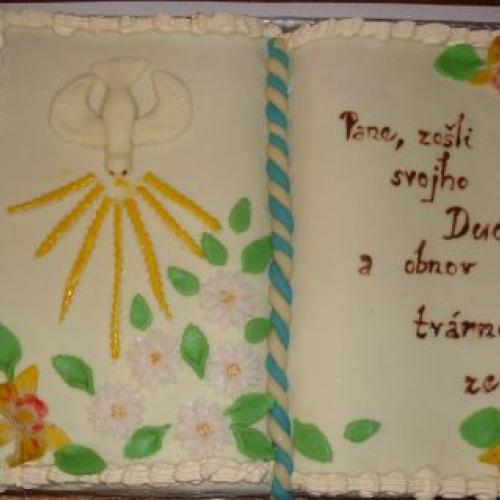 Pane, zošli
svojho
Duc
a obnov
tvárn
ze